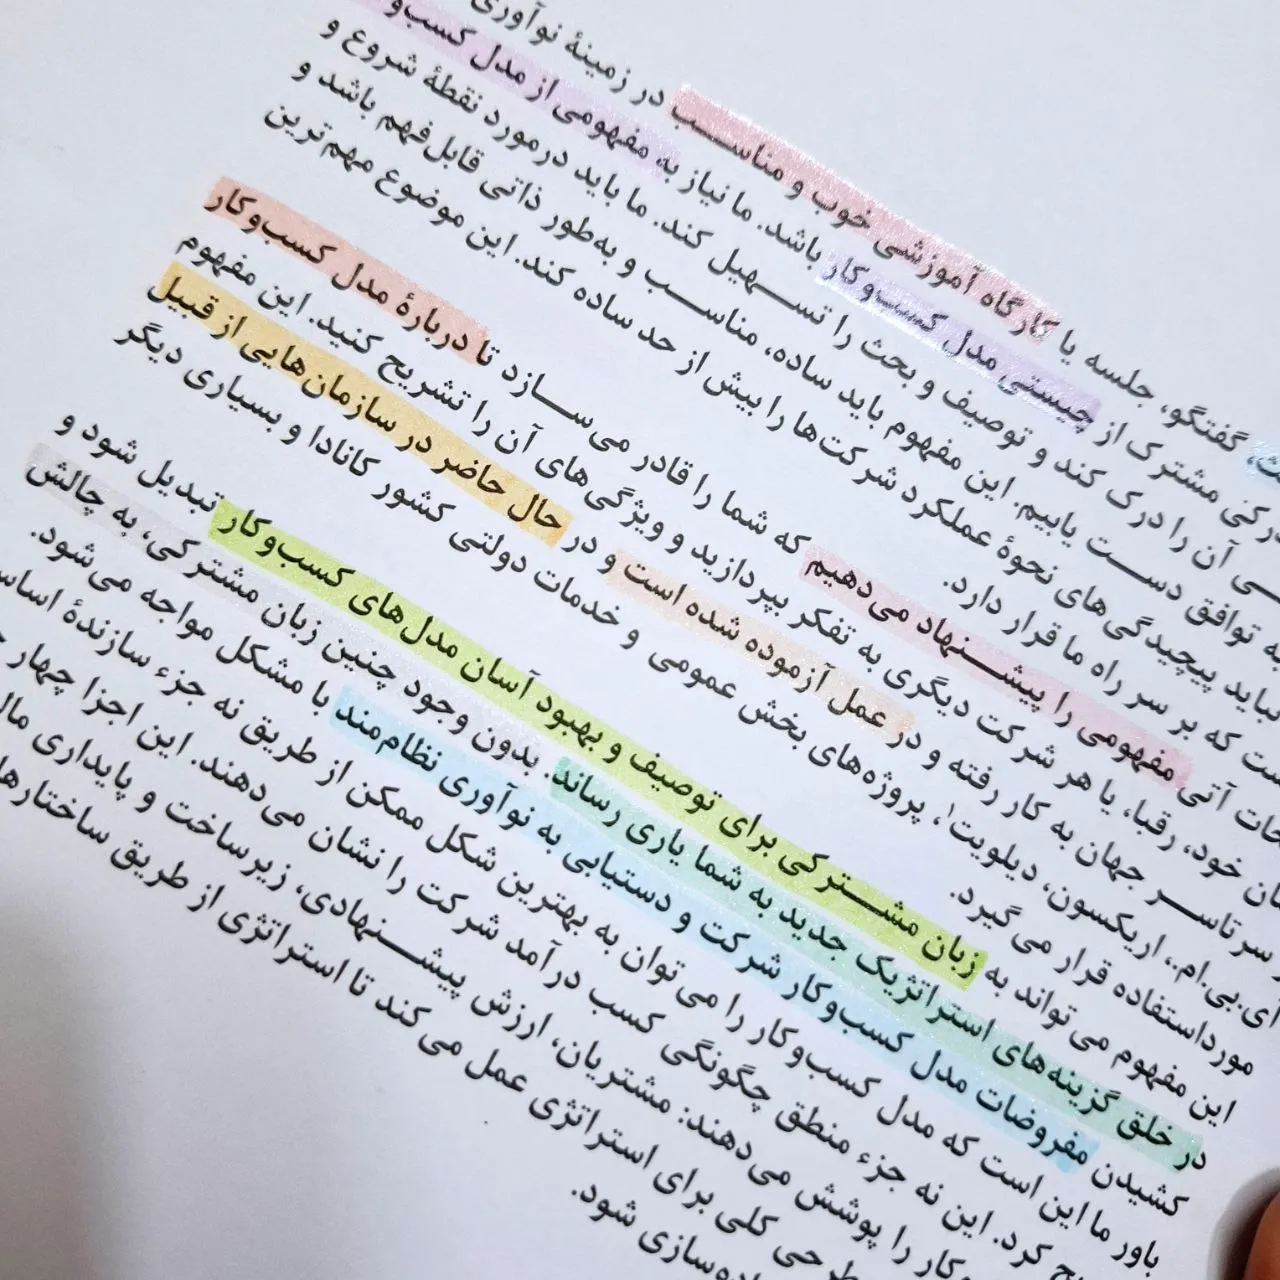 گفتگو، جلسه یا کارگاه آموزشی خوب و مناسب در زمینهٔ نوآوری
درکی مشترک از چیستی مدل کسب‌وکار باشد. ما نیاز به مفهومی از مدل کسب‌و
آن را درک کند و توصیف و بحث را تسهیل کند. ما باید درمورد نقطهٔ شروع و
به توافق دست یابیم. این مفهوم باید ساده، مناسب و به‌طور ذاتی قابل‌فهم باشد و
نباید پیچیدگی‌های نحوهٔ عملکرد شرکت‌ها را بیش از حد ساده کند. این موضوع مهم‌ترین
که بر سر راه ما قرار دارد.
آتی مفهومی را پیشنهاد می‌دهیم که شما را قادر می‌سازد تا دربارهٔ مدل کسب‌وکار
خود، رقبا، یا هر شرکت دیگری به تفکر بپردازید و ویژگی‌های آن را تشریح کنید. این مفهوم
سرتاسر جهان به کار رفته و در عمل آزموده شده است و در حال حاضر در سازمان‌هایی از قبیل
آی.بی.ام.، اریکسون، دیلویت۱، پروژه‌های بخش عمومی و خدمات دولتی کشور کانادا و بسیاری دیگر
مورداستفاده قرار می‌گیرد.
این مفهوم می‌تواند به زبان مشترکی برای توصیف و بهبود آسان مدل‌های کسب‌وکار تبدیل شود و
در خلق گزینه‌های استراتژیک جدید به شما یاری رساند. بدون وجود چنین زبان مشترکی، به چالش
کشیدن مفروضات مدل کسب‌وکار شرکت و دستیابی به نوآوری نظام‌مند با مشکل مواجه می‌شود.
باور ما این است که مدل کسب‌وکار را می‌توان به بهترین شکل ممکن از طریق نه جزء سازندهٔ
کرد. این نه جزء منطق چگونگی کسب درآمد شرکت را نشان می‌دهند. این اجزا چهار
را پوشش می‌دهند: مشتریان، ارزش پیشنهادی، زیرساخت و پایداری
کلی برای استراتژی عمل می‌کند تا استراتژی از طریق
شود.